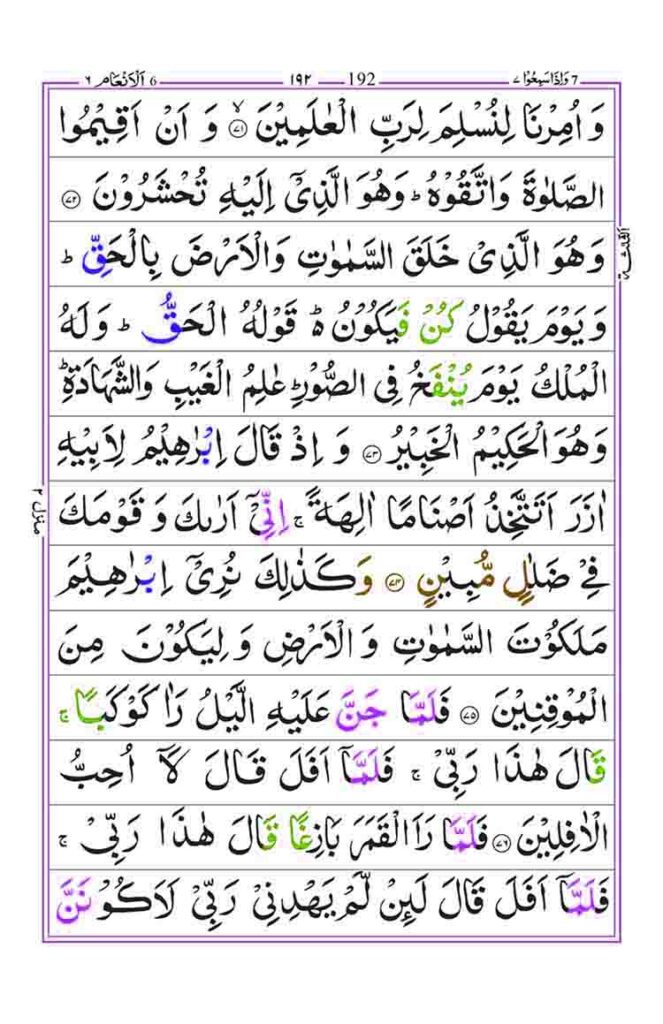 وَاِذَاسَمِعُوْا ٧ 7 192 ١٩٢ اَلْاَنْعَام ٦ 6
وَ اُمِرْنَا لِنُسْلِمَ لِرَبِّ الْعٰلَمِيْنَ ۙ﴿٧١﴾ وَ اَنْ اَقِيْمُوا
الصَّلٰوةَ وَاتَّقُوْهُ ؕ وَهُوَ الَّذِىْۤ اِلَيْهِ تُحْشَرُوْنَ ﴿٧٢﴾
وَهُوَ الَّذِىْ خَلَقَ السَّمٰوٰتِ وَالْاَرْضَ بِالْحَقِّ ؕ
وَ يَوْمَ يَقُوْلُ كُنْ فَيَكُوْنُ ۬ؕ قَوْلُهُ الْحَقُّ ؕ وَلَهُ
الْمُلْكُ يَوْمَ يُنْفَخُ فِى الصُّوْرِ ؕ عٰلِمُ الْغَيْبِ وَالشَّهَادَةِ ؕ
وَهُوَ الْحَكِيْمُ الْخَبِيْرُ ﴿٧٣﴾ وَ اِذْ قَالَ اِبْرٰهِيْمُ لِاَبِيْهِ
اٰزَرَ اَتَتَّخِذُ اَصْنَامًا اٰلِهَةً ۚ اِنِّىْۤ اَرٰىكَ وَ قَوْمَكَ
فِىْ ضَلٰلٍ مُّبِيْنٍ ﴿٧٤﴾ وَ كَذٰلِكَ نُرِىْۤ اِبْرٰهِيْمَ
مَلَكُوْتَ السَّمٰوٰتِ وَ الْاَرْضِ وَ لِيَكُوْنَ مِنَ
الْمُوْقِنِيْنَ ﴿٧٥﴾ فَلَمَّا جَنَّ عَلَيْهِ الَّيْلُ رَاٰ كَوْكَبًا ۚ
قَالَ هٰذَا رَبِّىْ ۚ فَلَمَّاۤ اَفَلَ قَالَ لَاۤ اُحِبُّ
الْاٰفِلِيْنَ ﴿٧٦﴾ فَلَمَّا رَاَ الْقَمَرَ بَازِغًا قَالَ هٰذَا رَبِّىْ ۚ
فَلَمَّاۤ اَفَلَ قَالَ لَئِنْ لَّمْ يَهْدِنِىْ رَبِّىْ لَاَكُوْنَنَّ
الثلثة
منزل ٢